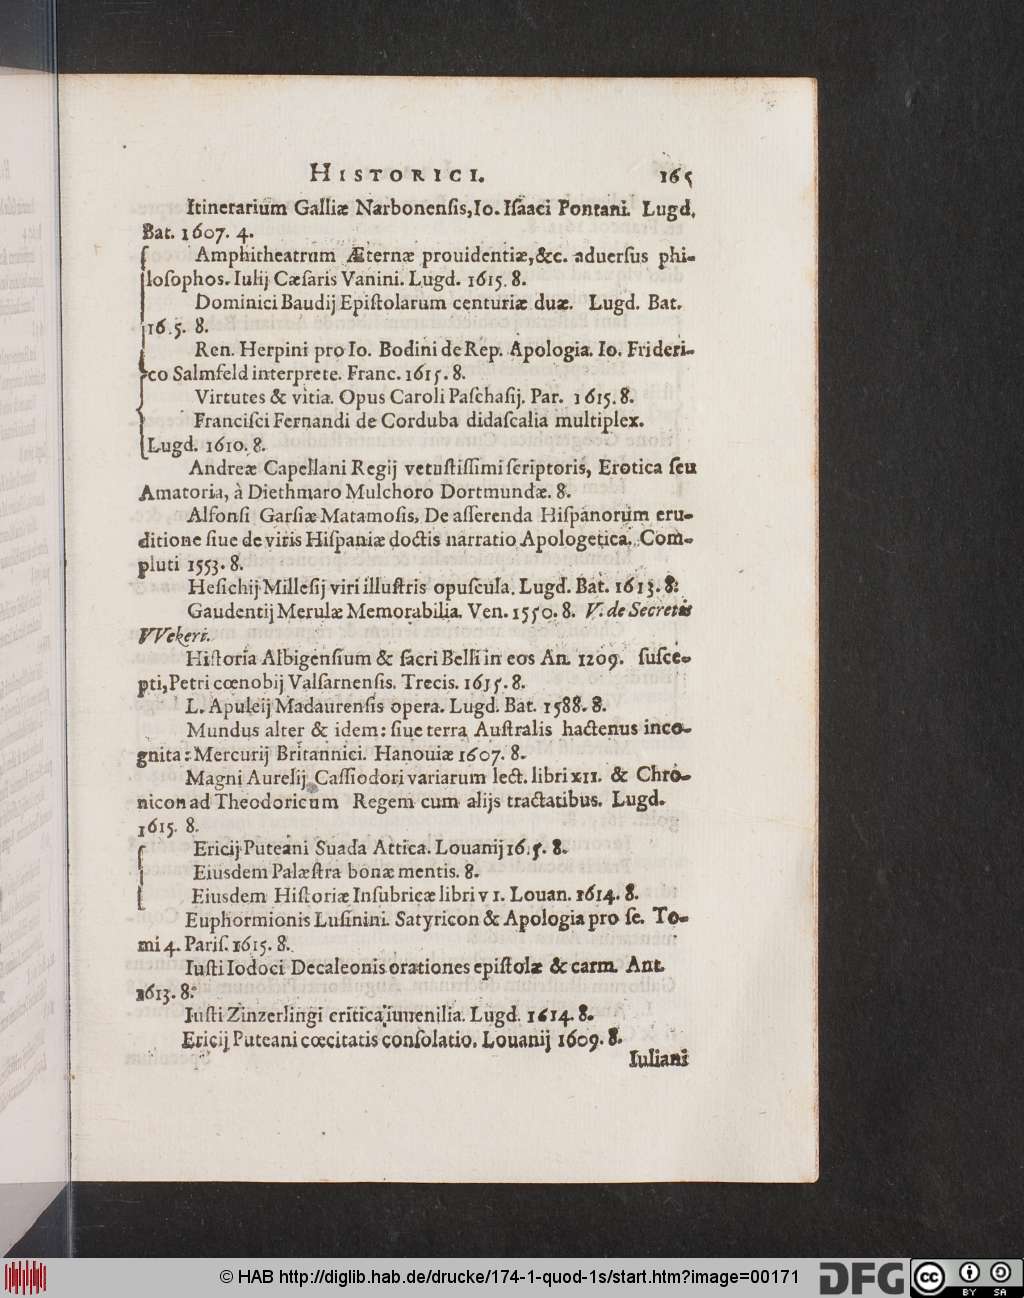 HISTORICI. 165
Itinerarium Galliæ Narbonenſis, Io. Iſaaci Pontani. Lugd.
Bat. 1607. 4.
Amphitheatrum Æternæ prouidentiæ, &c. aduerſus phi-
loſophos. Iulij Cæſaris Vanini. Lugd. 1615. 8.
Dominici Baudij Epiſtolarum centuriæ duæ. Lugd. Bat.
16.5. 8.
Ren. Herpini pro Io. Bodini de Rep. Apologia. Io. Frideri-
co Salmfeld interprete. Franc. 1615. 8.
Virtutes & vitia. Opus Caroli Paſchaſij. Par. 1615. 8.
Franciſci Fernandi de Corduba didaſcalia multiplex.
Lugd. 1610. 8.
Andreæ Capellani Regij vetuſtiſſimi ſcriptoris, Erotica ſeu
Amatoria, à Diethmaro Mulchoro Dortmundæ. 8.
Alfonſi Garſiæ Matamoſis, De aſſerenda Hiſpanorum eru-
ditione ſiue de viris Hiſpaniæ doctis narratio Apologetica. Com-
pluti 1553. 8.
Heſichij Milleſij viri illuſtris opuſcula. Lugd. Bat. 1613. 8.
Gaudentij Merulæ Memorabilia. Ven. 1550. 8. V. de Secretis
VVekeri.
Hiſtoria Albigenſium & ſacri Belli in eos An. 1209. ſuſce-
pti, Petri cœnobij Valſarnenſis. Trecis. 1615. 8.
L. Apuleij Madaurenſis opera. Lugd. Bat. 1588. 8.
Mundus alter & idem: ſiue terra Auſtralis hactenus inco-
gnita: Mercurij Britannici. Hanouiæ 1607. 8.
Magni Aurelij Caſſiodori variarum lect. libri XII. & Chro-
nicon ad Theodoricum Regem cum alijs tractatibus. Lugd.
1615. 8.
Ericij Puteani Suada Attica. Louanij 16.5. 8.
Eiusdem Palæſtra bonæ mentis. 8.
Eiusdem Hiſtoriæ Inſubricæ libri VI. Louan. 1614. 8.
Euphormionis Luſinini. Satyricon & Apologia pro ſe. To-
mi 4. Pariſ. 1615. 8.
Iuſti Iodoci Decaleonis orationes epiſtolæ & carm. Ant.
1613. 8.
Iuſti Zinzerlingi critica iuuenilia. Lugd. 1614. 8.
Ericij Puteani cœcitatis conſolatio. Louanij 1609. 8.
Iuliani
© HAB http://diglib.hab.de/drucke/174-1-quod-1s/start.htm?image=00171
DFG
cc BY SA